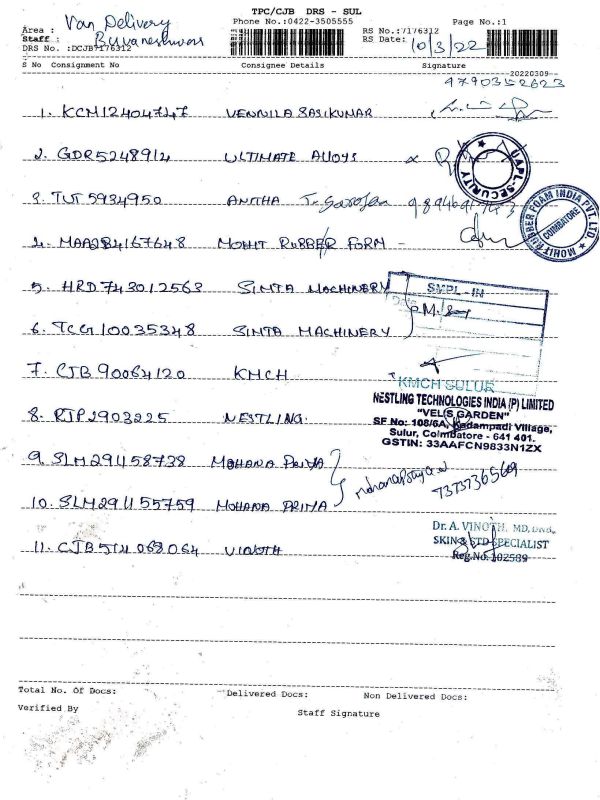 TPC/CJB DRS - SUL
Van Delivery
Phone No.:0422-3505555
Page No.:1
Area :
Staff :
RS No.:7176312
RS Date: 10/3/22
DRS No. :DCJB7176312
S No Consignment No Consignee Details Signature
20220309
9790352623
1. KCM12404747 VENNILA SASIKUMAR
2. GDR5248914 ULTIMATE ALLOYS
UAPL-SECURITY
3. TUT5934950 ANITHA
MOHIT RUBBER FOAM INDIA PVT. LTD
COIMBATORE
4. MAA2B4167648 MOHIT RUBBER FORM -
5. HRD743012563 SIMTA MACHINERY
SMPL - IN
6. TCG10035348 SIMTA MACHINERY
7. CJB90064120 KMCH
KMCH SULUR
NESTLING TECHNOLOGIES INDIA (P) LIMITED
"VELS GARDEN"
8. RJP2903225 NESTLING
SF No: 108/6A, Kadampadi Village,
Sulur, Coimbatore - 641 401.
GSTIN: 33AAFCN9833N1ZX
9. SLM291158738 MOHANA PRIYA
73737365609
10. SLM291155759 MOHANA PRIYA
Dr. A. VINOTH, MD, DVD,
SKIN & STD SPECIALIST
Reg.No. 102589
11. CJB514068064 VINOTH
Total No. Of Docs: Delivered Docs: Non Delivered Docs:
Verified By Staff Signature